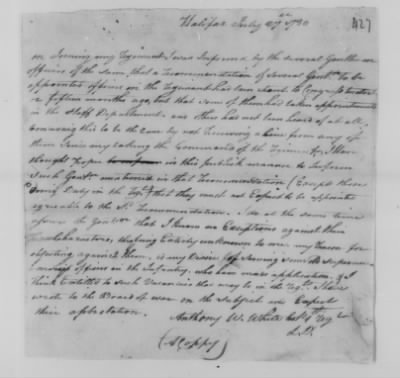 Halifax July 27th 1780
427
on Joining my Regiment I was Informed by the several Gentlemen
officers of the same, that a recommendation of several Gentn. to be
appointed officers in the Regiment had been sent to Congress
fifteen months ago, but that some of them had taken appointments
in the Staff Department, and others has not been heard of at all,
Conceiving this to be the case by not receiving a line from any of
them since my taking the Command of the Regiment, I have
thought proper in this publick manner to Inform
such Gentn. mentioned in that recommendation (Except those
doing Duty in the Regt.) that they need not Expect to be appointed
agreeable to the Sd. recommendation. I do at the same time
upon Honor that I know no Exceptions against their
Characters, they being Entirely unknown to me, my reason for
objecting against them, is my Desire of serving some
officers in the Infantry, who have made application, &
think Entitled to such Vacancies that may be in the Regt. I have
wrote to the Board of War on the Subject and Expect
their approbation.
Anthony W. White
L.D.
(Coppy)